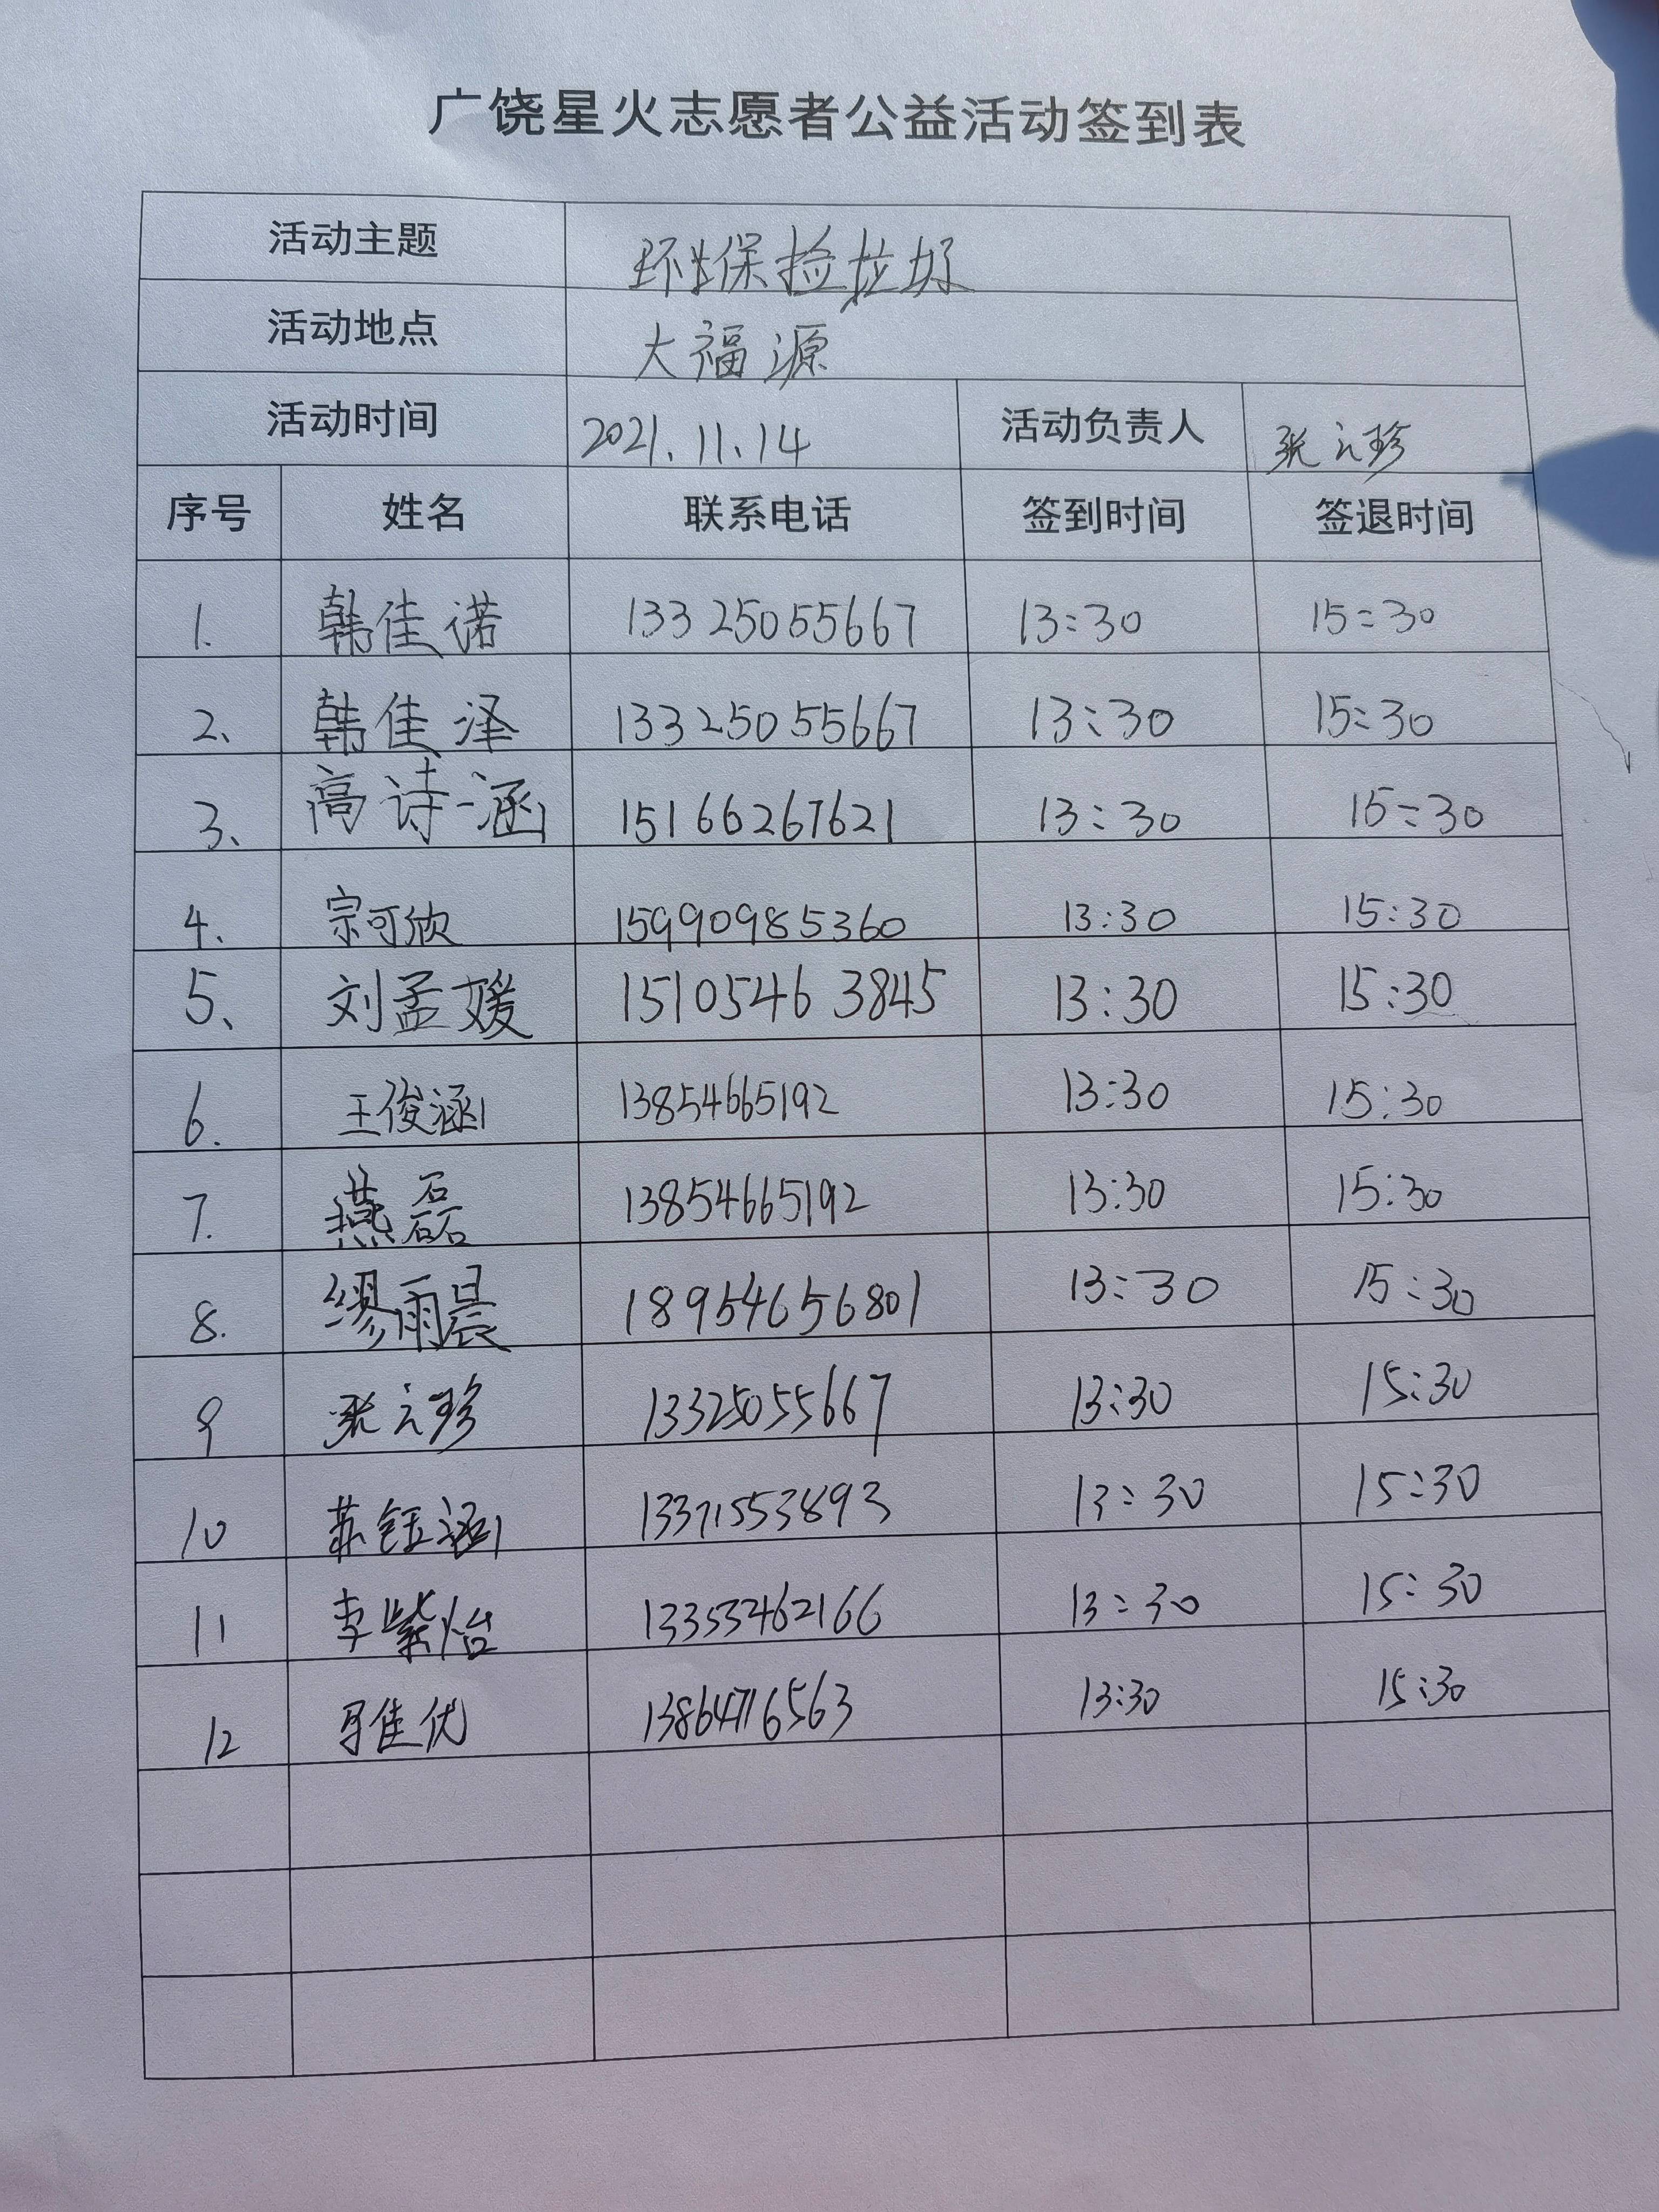 广饶星火志愿者公益活动签到表
活动主题 环保捡垃圾
活动地点 大福源
活动时间 2021.11.14 活动负责人 张云珍
序号 姓名 联系电话 签到时间 签退时间
1. 韩佳诺 13325055667 13:30 15:30
2、 韩佳泽 13325055667 13:30 15:30
3、 高诗涵 15166267621 13:30 15:30
4、 宗可欣 15990985360 13:30 15:30
5、 刘孟媛 15105463845 13:30 15:30
6. 王俊涵 13854665192 13:30 15:30
7. 燕磊 13854665192 13:30 15:30
8. 缪雨晨 18954656801 13:30 15:30
9 张云珍 13325055667 13:30 15:30
10 苏钰涵 13371553893 13:30 15:30
11 李紫怡 13353462166 13:30 15:30
12 佳优 13864716563 13:30 15:30